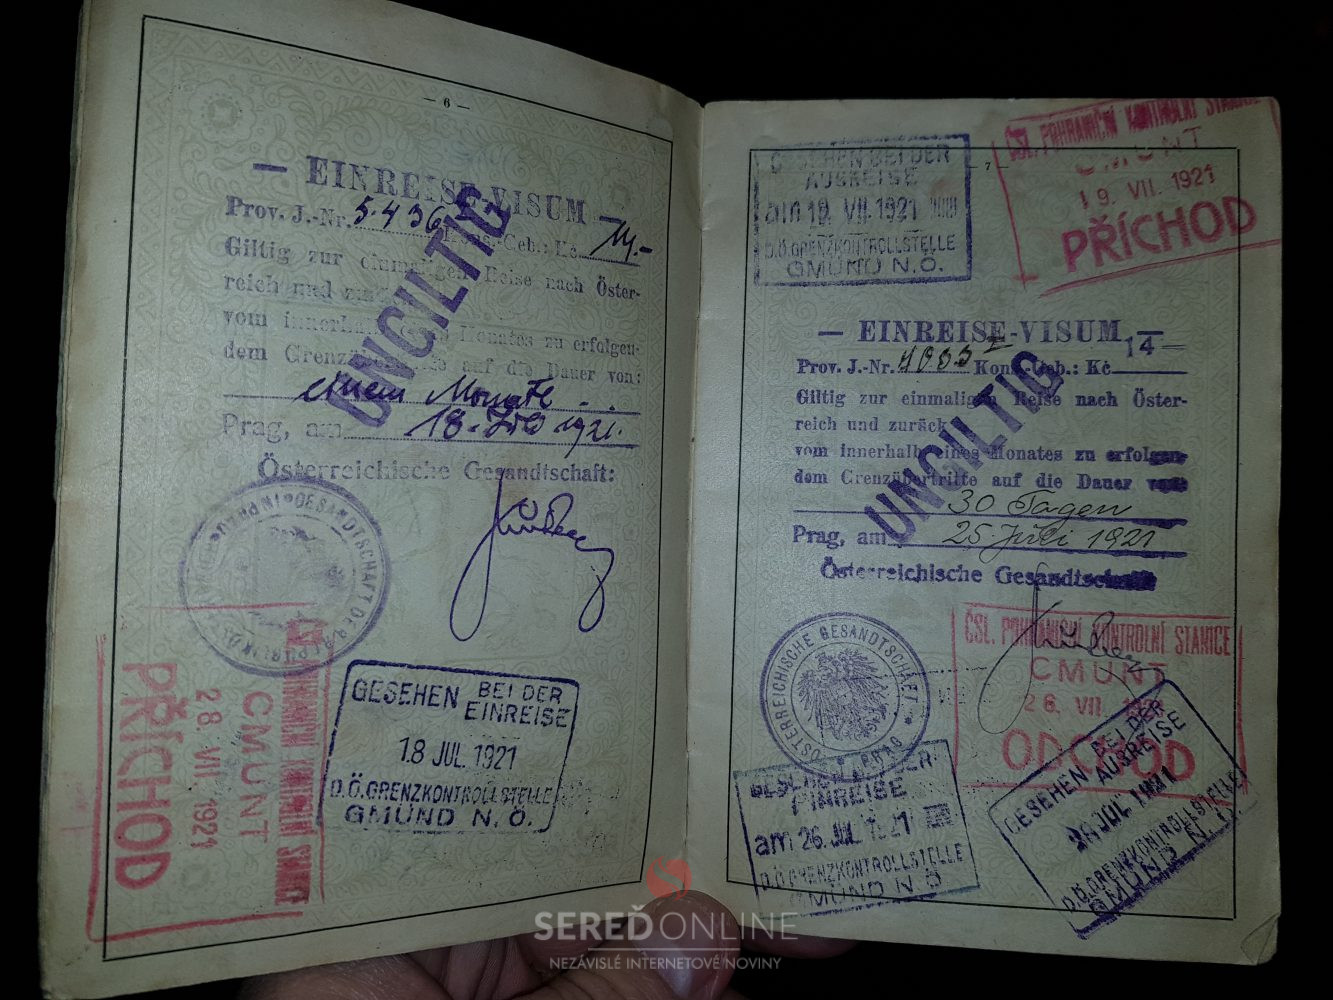 — 6 —
— EINREISE-VISUM —
Prov. J.-Nr. 5436 Kons.-Geb.: Kč 14.-
Giltig zur einmaligen Reise nach Öster-
reich und zurück
vom innerhalb Monates zu erfolgen-
dem Grenzübertritte auf die Dauer von:
einem Monate
Prag, am 18. Juli 1921.
Österreichische Gesandtschaft:
UNGILTIG
GESANDTSCHAFT DER REPUBLIK
GESEHEN BEI DER
EINREISE
18 JUL. 1921
D.Ö.GRENZKONTROLLSTELLE
GMÜND N. Ö.
ČSL. POHRANIČNÍ KONTROLNÍ STANICE
CMUNT
28. VII. 1921
PŘÍCHOD
7
GESEHEN BEI DER
AUSREISE
am 19. VII. 1921
D.Ö.GRENZKONTROLLSTELLE
GMÜND N.Ö.
ČSL. POHRANIČNÍ KONTROLNÍ STANICE
CMUNT
19. VII. 1921
PŘÍCHOD
— EINREISE-VISUM —
Prov. J.-Nr. Kons.-Geb.: Kč 14 —
Giltig zur einmaligen Reise nach Öster-
reich und zurück
vom innerhalb eines Monates zu erfolgen-
dem Grenzübertritte auf die Dauer von
30 Tagen
Prag, am 25. Juli 1921
Österreichische Gesandtschaft
UNGILTIG
ÖSTERREICHISCHE GESANDTSCHAFT * PRAG
ČSL. POHRANIČNÍ KONTROLNÍ STANICE
CMUNT
26. VII. 1921
ODCHOD
GESEHEN BEI DER
EINREISE
am 26. JUL. 1921
D.Ö.GRENZKONTROLLSTELLE
GMÜND N Ö
GESEHEN BEI DER
AUSREISE
JUL 1921
D.Ö.GRENZKONTROLLSTELLE
GMÜND N.
SEREĎONLINE
NEZÁVISLÉ INTERNETOVÉ NOVINY